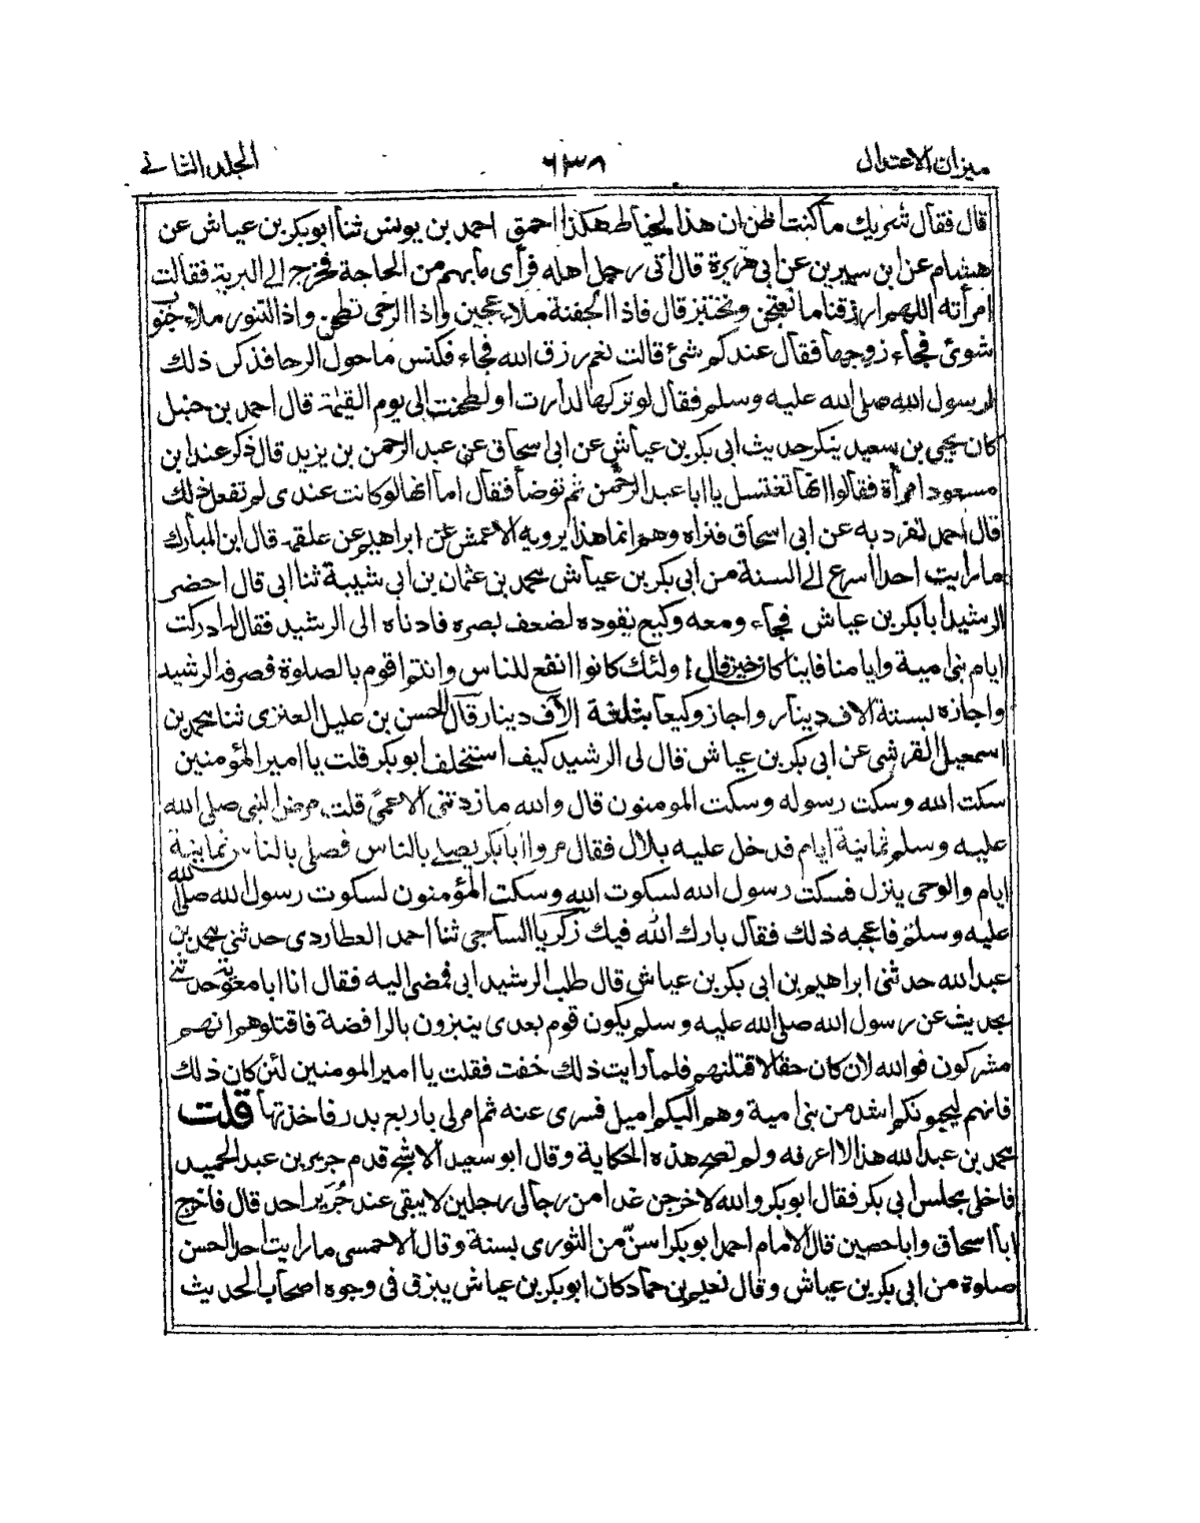 ميزان الاعتدال ٦٣٨ الجلد الثاني
قال فقال شريك ما كنت اظن ان هذا الخياط هكذا احمق احمد بن يونس ثنا ابو بكر بن عياش عن
هشام عن ابن سيرين عن ابي هريرة قال اتى رجل اهله فرأى ما بهم من الحاجة فخرج الى البرية فقالت
امرأته اللهم ارزقنا ما نعتجن ونختبز قال فاذا الجفنة ملاء عجين واذا الرحى تطحن واذا التنور ملاء جنوب
شوئ فجاء زوجها فقال عندكم شئ قالت نعم رزق الله فجاء فكنس ما حول الرحا فذكر ذلك
لرسول الله صلى الله عليه وسلم فقال لو تركها لدارت او لطحنت الى يوم القيمة قال احمد بن حنبل
كان يحيى بن سعيد ينكر حديث ابي بكر بن عياش عن ابي اسحاق عن عبد الرحمن بن يزيد قال ذكر عند ابن
مسعود امرأة فقالوا انها تغتسل يا ابا عبد الرحمن ثم توضأ فقال اما انها لو كانت عندى لم تفعل ذلك
قال احمد تفرد به عن ابي اسحاق فنراه وهم انما هذا يرويه الاعمش عن ابراهيم عن علقمة قال ابن المبارك
ما رايت احدا اسرع الى السنة من ابي بكر بن عياش محمد بن عثمان بن ابي شيبة ثنا ابي قال احضر
الرشيد ابا بكر بن عياش فجاء ومعه وكيع يقوده لضعف بصره فادناه الى الرشيد فقال له ادركت
ايام بني امية وايامنا فاينا كان خير قال اولئك كانوا انفع للناس وانتم اقوم بالصلوة فصرفه الرشيد
واجازه بستة الاف دينار واجاز وكيعا بثلثة الآف دينار قال الحسن بن عليل العنزى ثنا محمد بن
اسمعيل القرشى عن ابي بكر بن عياش قال لى الرشيد كيف استخلف ابو بكر قلت يا امير المؤمنين
سكت الله وسكت رسوله وسكت المومنون قال والله ما زدتنى الا عمىً قلت مرض النبي صلى الله
عليه وسلم ثمانية ايام فدخل عليه بلال فقال مروا ابا بكر يصلى بالناس فصلى بالناس ثمانية
ايام والوحى ينزل فسكت رسول الله لسكوت الله وسكت المؤمنون لسكوت رسول الله صلى الله
عليه وسلم فاعجبه ذلك فقال بارك الله فيك زكريا الساجى ثنا احمد العطاردى حدثنى محمد بن
عبد الله حدثنى ابراهيم بن ابي بكر بن عياش قال طلب الرشيد ابي فمضى اليه فقال انا ابا معوية حدثنى
بحديث عن رسول الله صلى الله عليه وسلم يكون قوم بعدى ينبزون بالرافضة فاقتلوهم انهم
مشركون فوالله لان كان حقا لاقتلنهم فلما رايت ذلك خفت فقلت يا امير المومنين لئن كان ذلك
فانهم ليحبونكم اشد من بني امية وهم اليكم اميل فسرى عنه ثم امر لي باربع بدر فاخذتها قلت
محمد بن عبد الله هذا لا اعرفه ولم تصح هذه الحكاية وقال ابو سعيد الاشج قدم جرير بن عبد الحميد
فاخلى مجلس ابي بكر فقال ابو بكر والله لاخرجن غدا من رجالى رجلين لا يبقى عند جرير احد قال فاخرج
ابا اسحاق وابا حصين قال الامام احمد ابو بكر اسنّ من الثورى بسنة وقال الاحمسى ما رايت احدا احسن
صلوة من ابي بكر بن عياش وقال نعيم بن حماد كان ابو بكر بن عياش يبزق في وجوه اصحاب الحديث